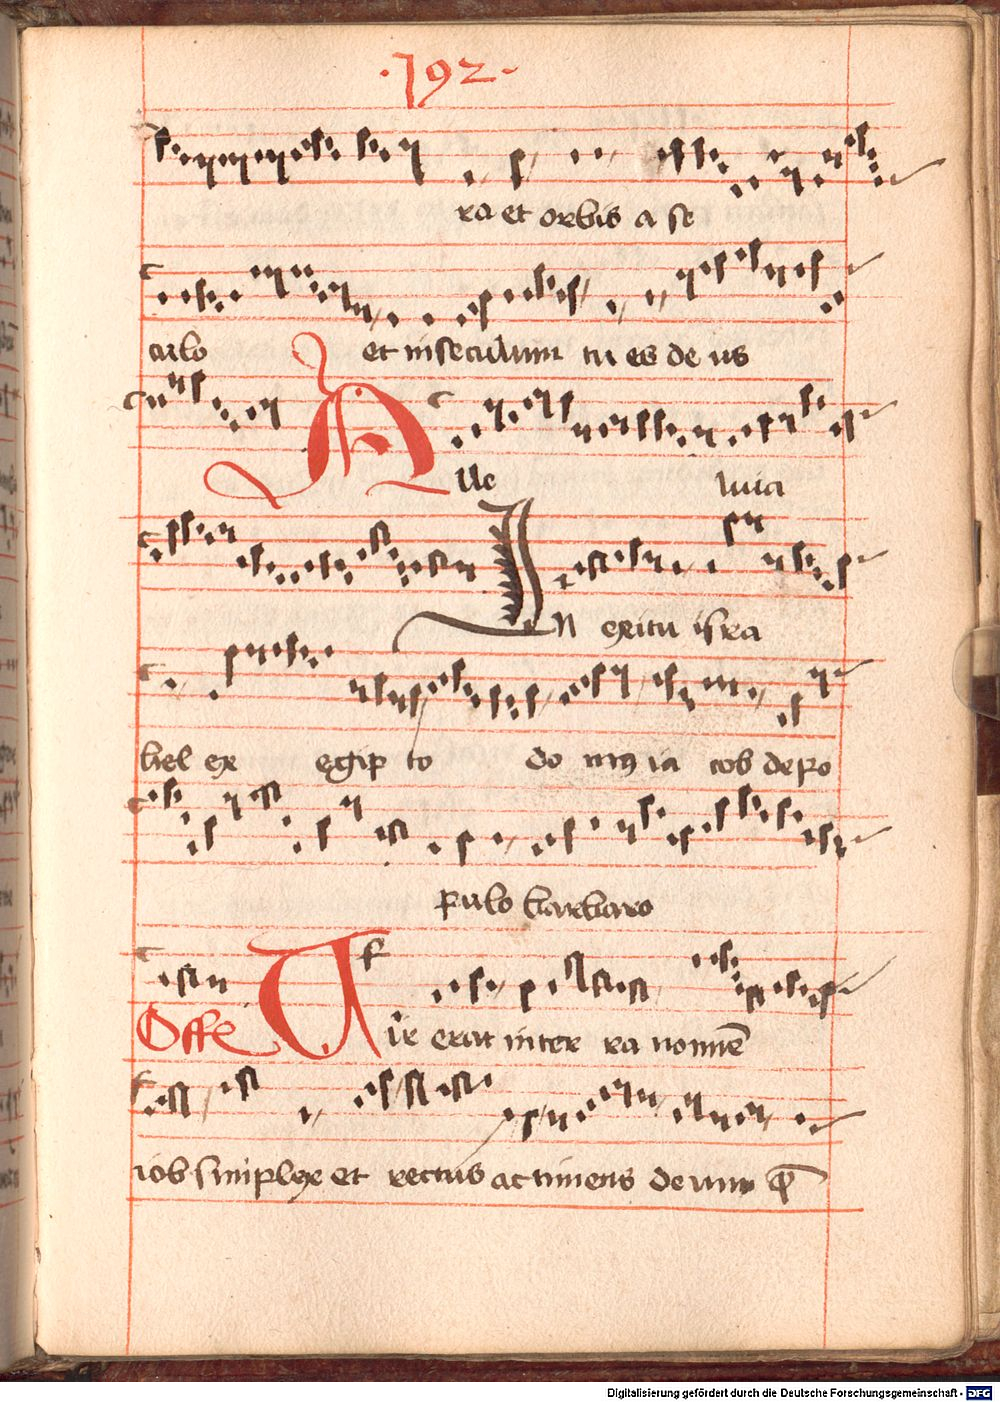 ·192·
ra et orbis a se
culo et in seculum tu es de us
Alle luia
In exitu isra
hel ex egip to do mus ia cob de po
pulo barbaro
Offe Vir erat in ter ra nomine
iob simplex et rectus ac timens deum
Digitalisierung gefördert durch die Deutsche Forschungsgemeinschaft - DFG